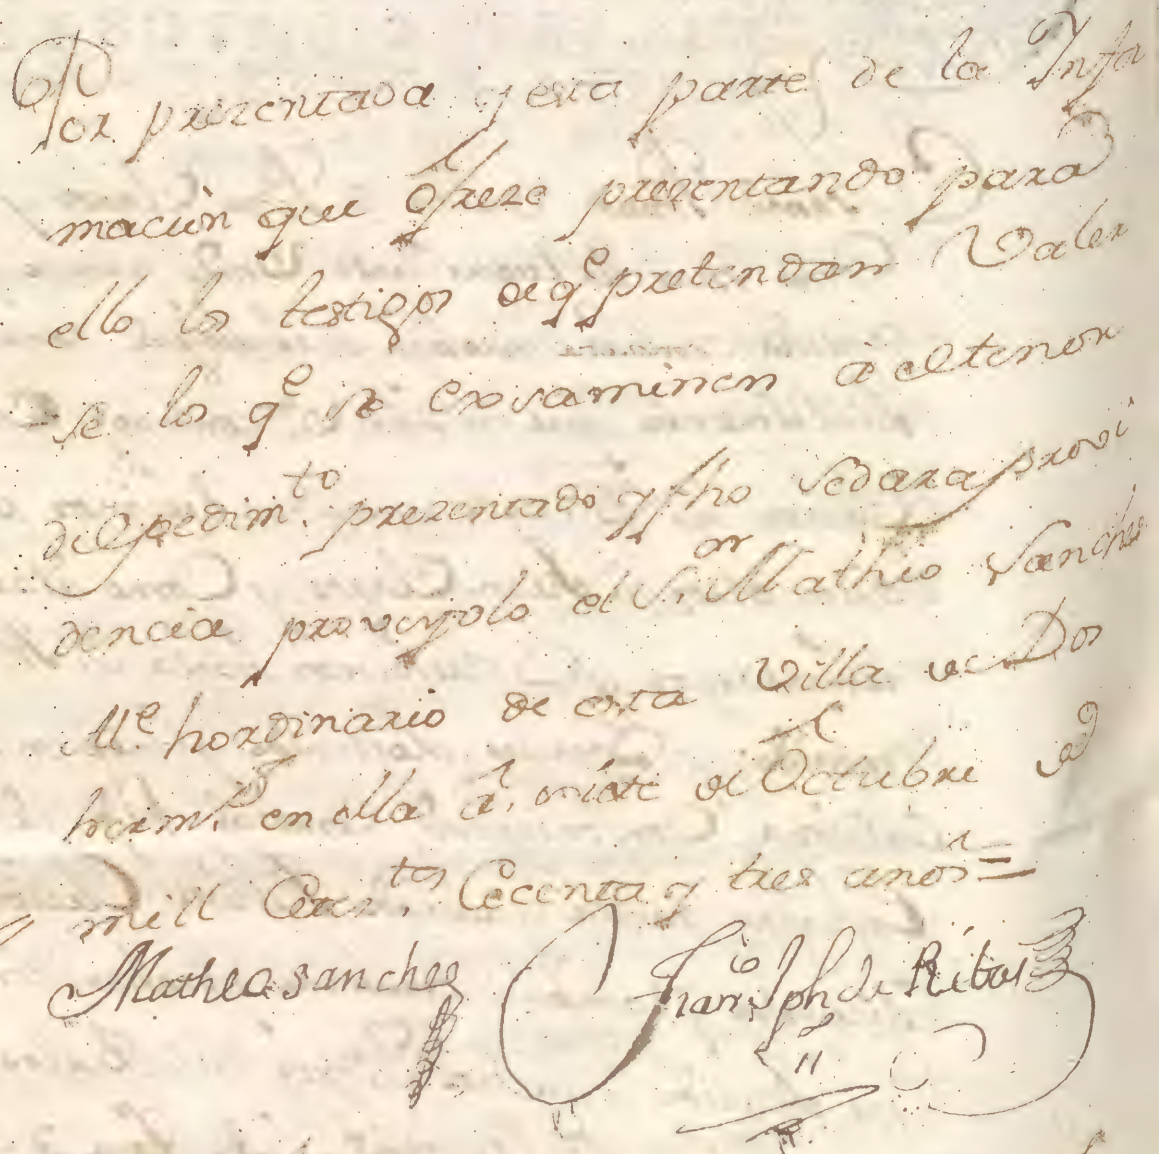 Por prezentada y esta parte de la Infor
mación que ofreze prezentando para
ello los testigos de q.e pretendan Valer
se los q.e se exsaminen à el tenor
del pedim.to prezentado y fho se dara provi
dencia proveyolo el S.or Matheo Sanches
Al.e hordinario de esta Villa de Dos
herm.s en ella à siete de Octubre de
mill Setez.tos Cecenta y tres anõs =
Matheo sanches Fran.co Jph de Ribas